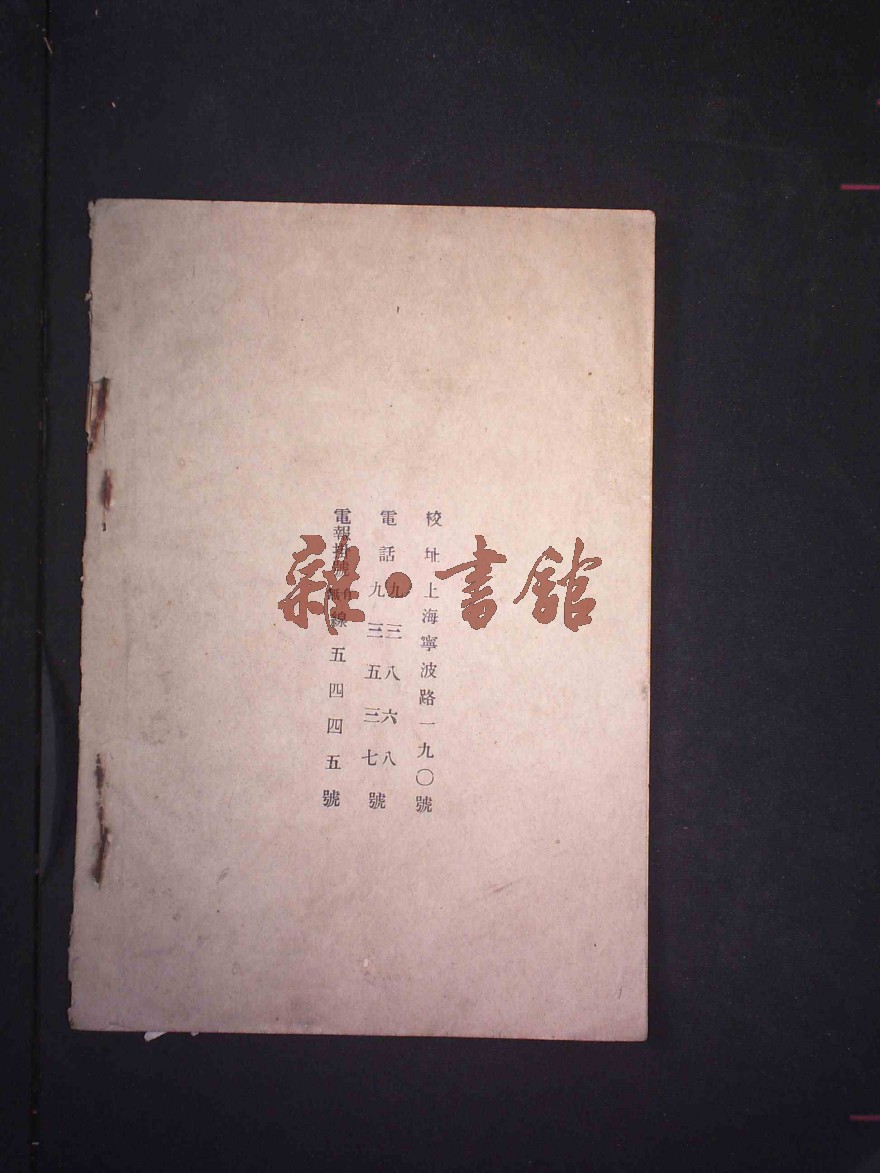 校址上海寧波路一九〇號
電話九三八六八
九三五三七號
電報掛號有無線五四四五號
雜·書館